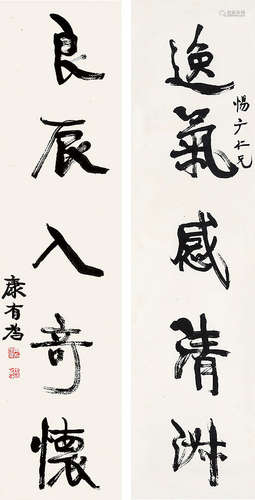 惕广仁兄
逸氣感清淑
良辰入奇懷
康有為